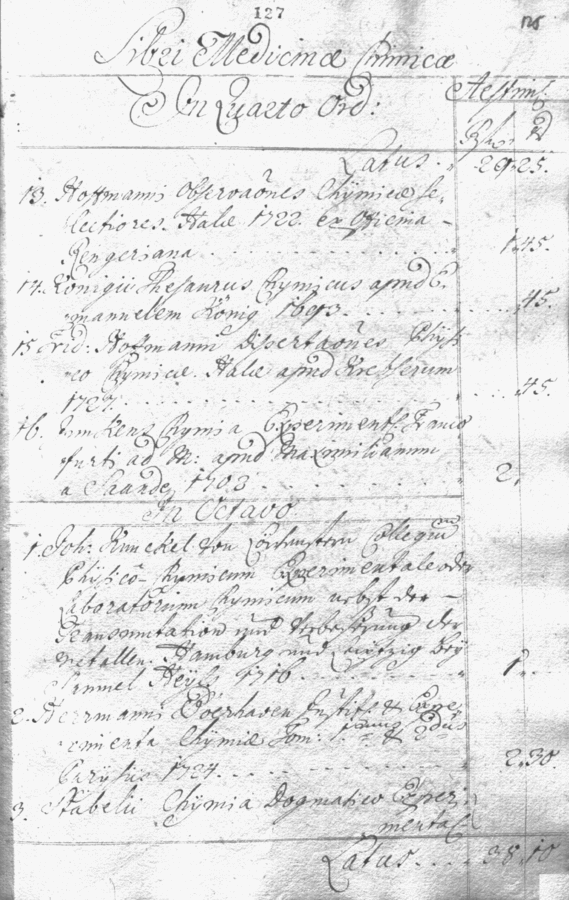 127
Libri Medicinæ Chimicæ
Aestim:
In Quarto Ord:
Latus . 29. 25.
13. Hoffmanni Observaõnes Chÿmicæ se-
lectiores. Halæ 1722. ex Officina
Rengeriana . . . 1. 45.
14. Königii Thesaurus Kymicus apud E-
mannelem König 1693. . . . 45.
15 Frid: Hoffmanni dissertaõnes Physi-
co Kymicæ. Halæ apud
1727. . . . 45.
16. Kymia Experiment: Franco
furti ad M: apud Maximilianum
a Sande, 1703 . . . 2.
In Octavo
1. Joh: Kunckel von Löwenstern Collegium
Physico-Kymicum Experimentale oder
Laboratorium Kymicum nebst der -
Transmutation und Verbesserung der
Metallen. Hamburg und Leipzig beÿ
Samuel Heyl. 1716. . . . 1.
2. Herrmanni Boerhaven Instit: & Expe-
rimenta Chÿmiæ Tom: 1mus & 2dus
Parysiis 1724. . . . 2. 30.
3. Stahelii Chÿmia Dogmatico Experi-
mental:
Latus . . . . 38. 10